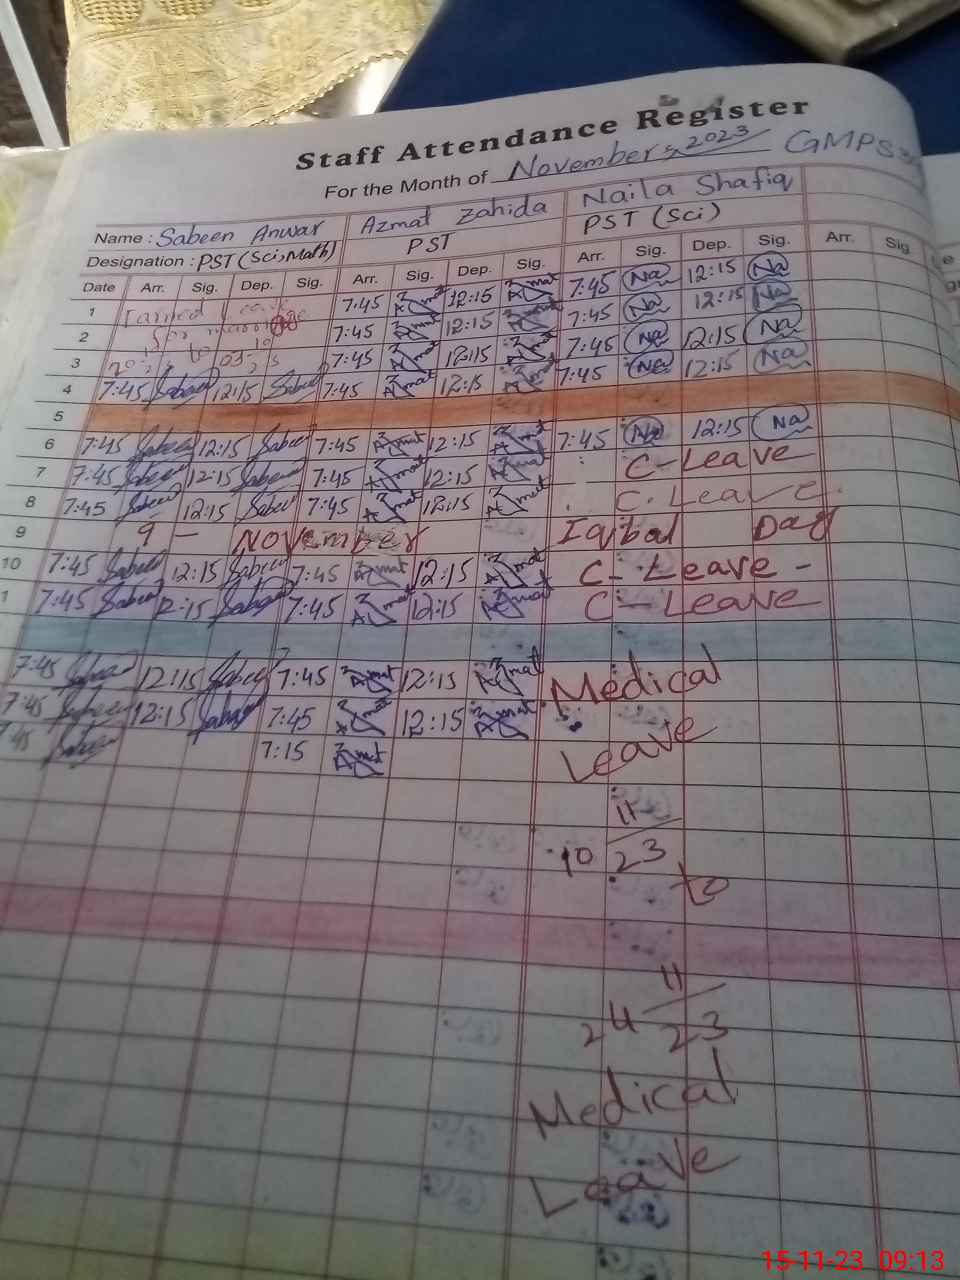 Staff Attendance Register
For the Month of November, 2023 GMPS
Name : Sabeen Anwar Azmat Zahida Naila Shafiq
Designation : PST (Sci, Math) PST PST (Sci)
Date Arr. Sig. Dep. Sig. Arr. Sig. Dep. Sig. Arr. Sig. Dep. Sig. Arr. Sig.
1 Earned leave 7:45 Azmat 12:15 Azmat 7:45 Na 12:15 Na
2 for marriage 7:45 Azmat 12:15 Azmat 7:45 Na 12:15 Na
3 to 7:45 Azmat 12:15 Azmat 7:45 Na 12:15 Na
4 7:45 Sabeen 12:15 Sabeen 7:45 Azmat 12:15 Azmat 7:45 Na 12:15 Na
5
6 7:45 Sabeen 12:15 Sabeen 7:45 Azmat 12:15 Azmat 7:45 Na 12:15 Na
7 7:45 Sabeen 12:15 Sabeen 7:45 Azmat 12:15 Azmat C-Leave
8 7:45 Sabeen 12:15 Sabeen 7:45 Azmat 12:15 Azmat C.Leave.
9 9 - November Iqbal Day
10 7:45 Sabeen 12:15 Sabeen 7:45 Azmat 12:15 Azmat C-Leave-
1 7:45 Sabeen 12:15 Sabeen 7:45 Azmat 12:15 Azmat C-Leave
7:45 Sabeen 12:15 Sabeen 7:45 Azmat 12:15 Azmat Medical
7:45 Sabeen 12:15 Sabeen 7:45 Azmat 12:15 Azmat
:45 Sabeen 7:15 Azmat Leave
11
10 23
to
11
24 23
Medical
Leave
15-11-23 09:13